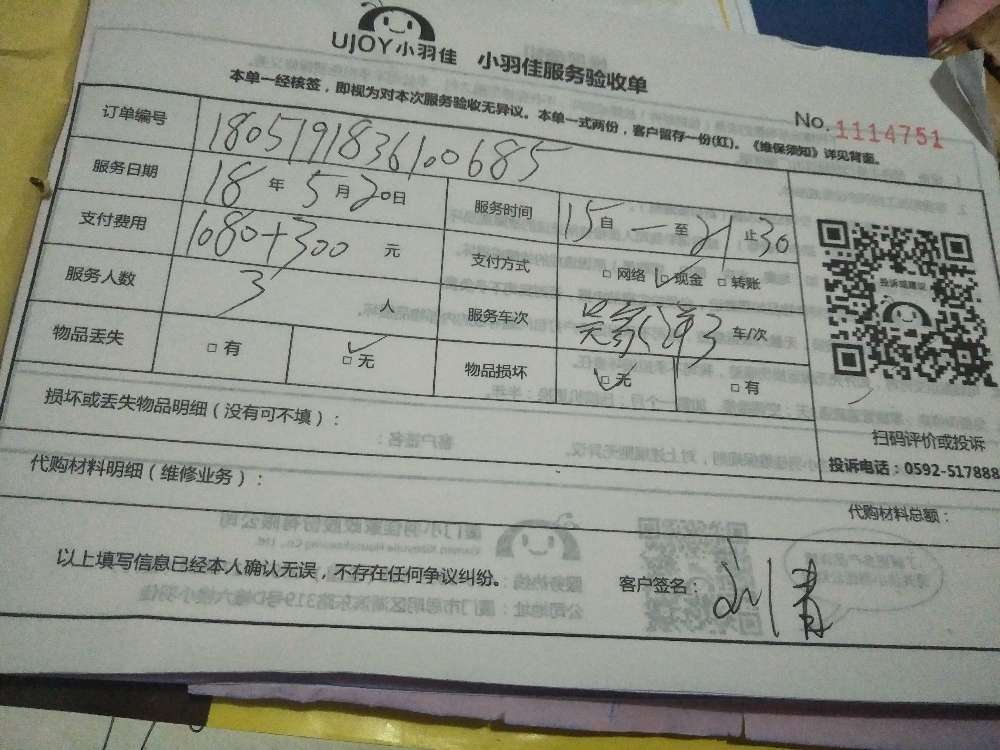 UJOY小羽佳 小羽佳服务验收单
本单一经核签，即视为对本次服务验收无异议。本单一式两份，客户留存一份(红)。《维保须知》详见背面。
No. 1114751
订单编号 1805191836100685
服务日期 18年5月20日 服务时间 15自 一至21止30
支付费用 1080+300元 支付方式 □网络 ☑现金 □转账
服务人数 3人 服务车次 3车/次
物品丢失 □有 ☑无 物品损坏 ☑无 □有
投诉或建议
损坏或丢失物品明细（没有可不填）：
扫码评价或投诉
投诉电话：0592-517888
代购材料明细（维修业务）：
代购材料总额：
以上填写信息已经本人确认无误，不存在任何争议纠纷。 客户签名：